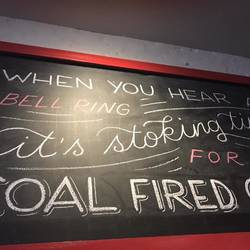 WHEN YOU HEAR
BELL RING
it's stoking
FOR
COAL FIRED